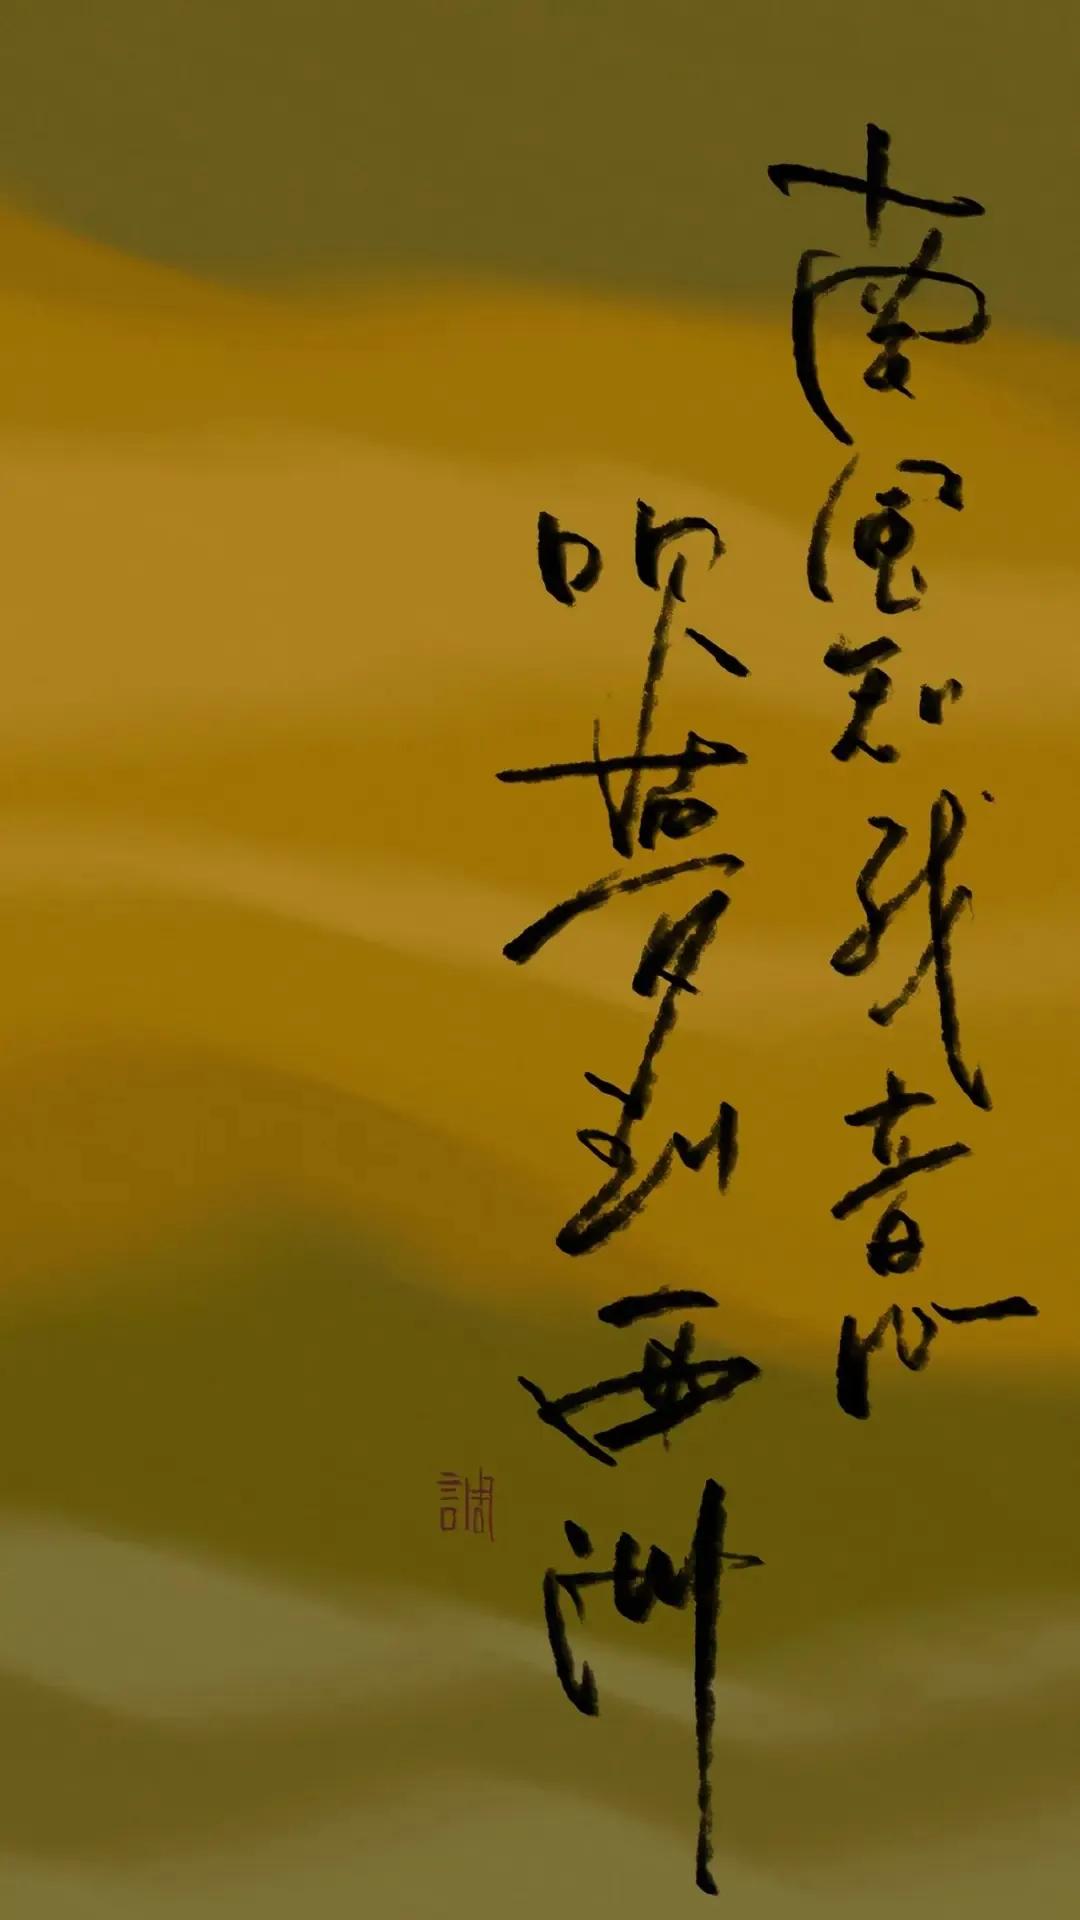 南風知我意
吹夢到西洲
調